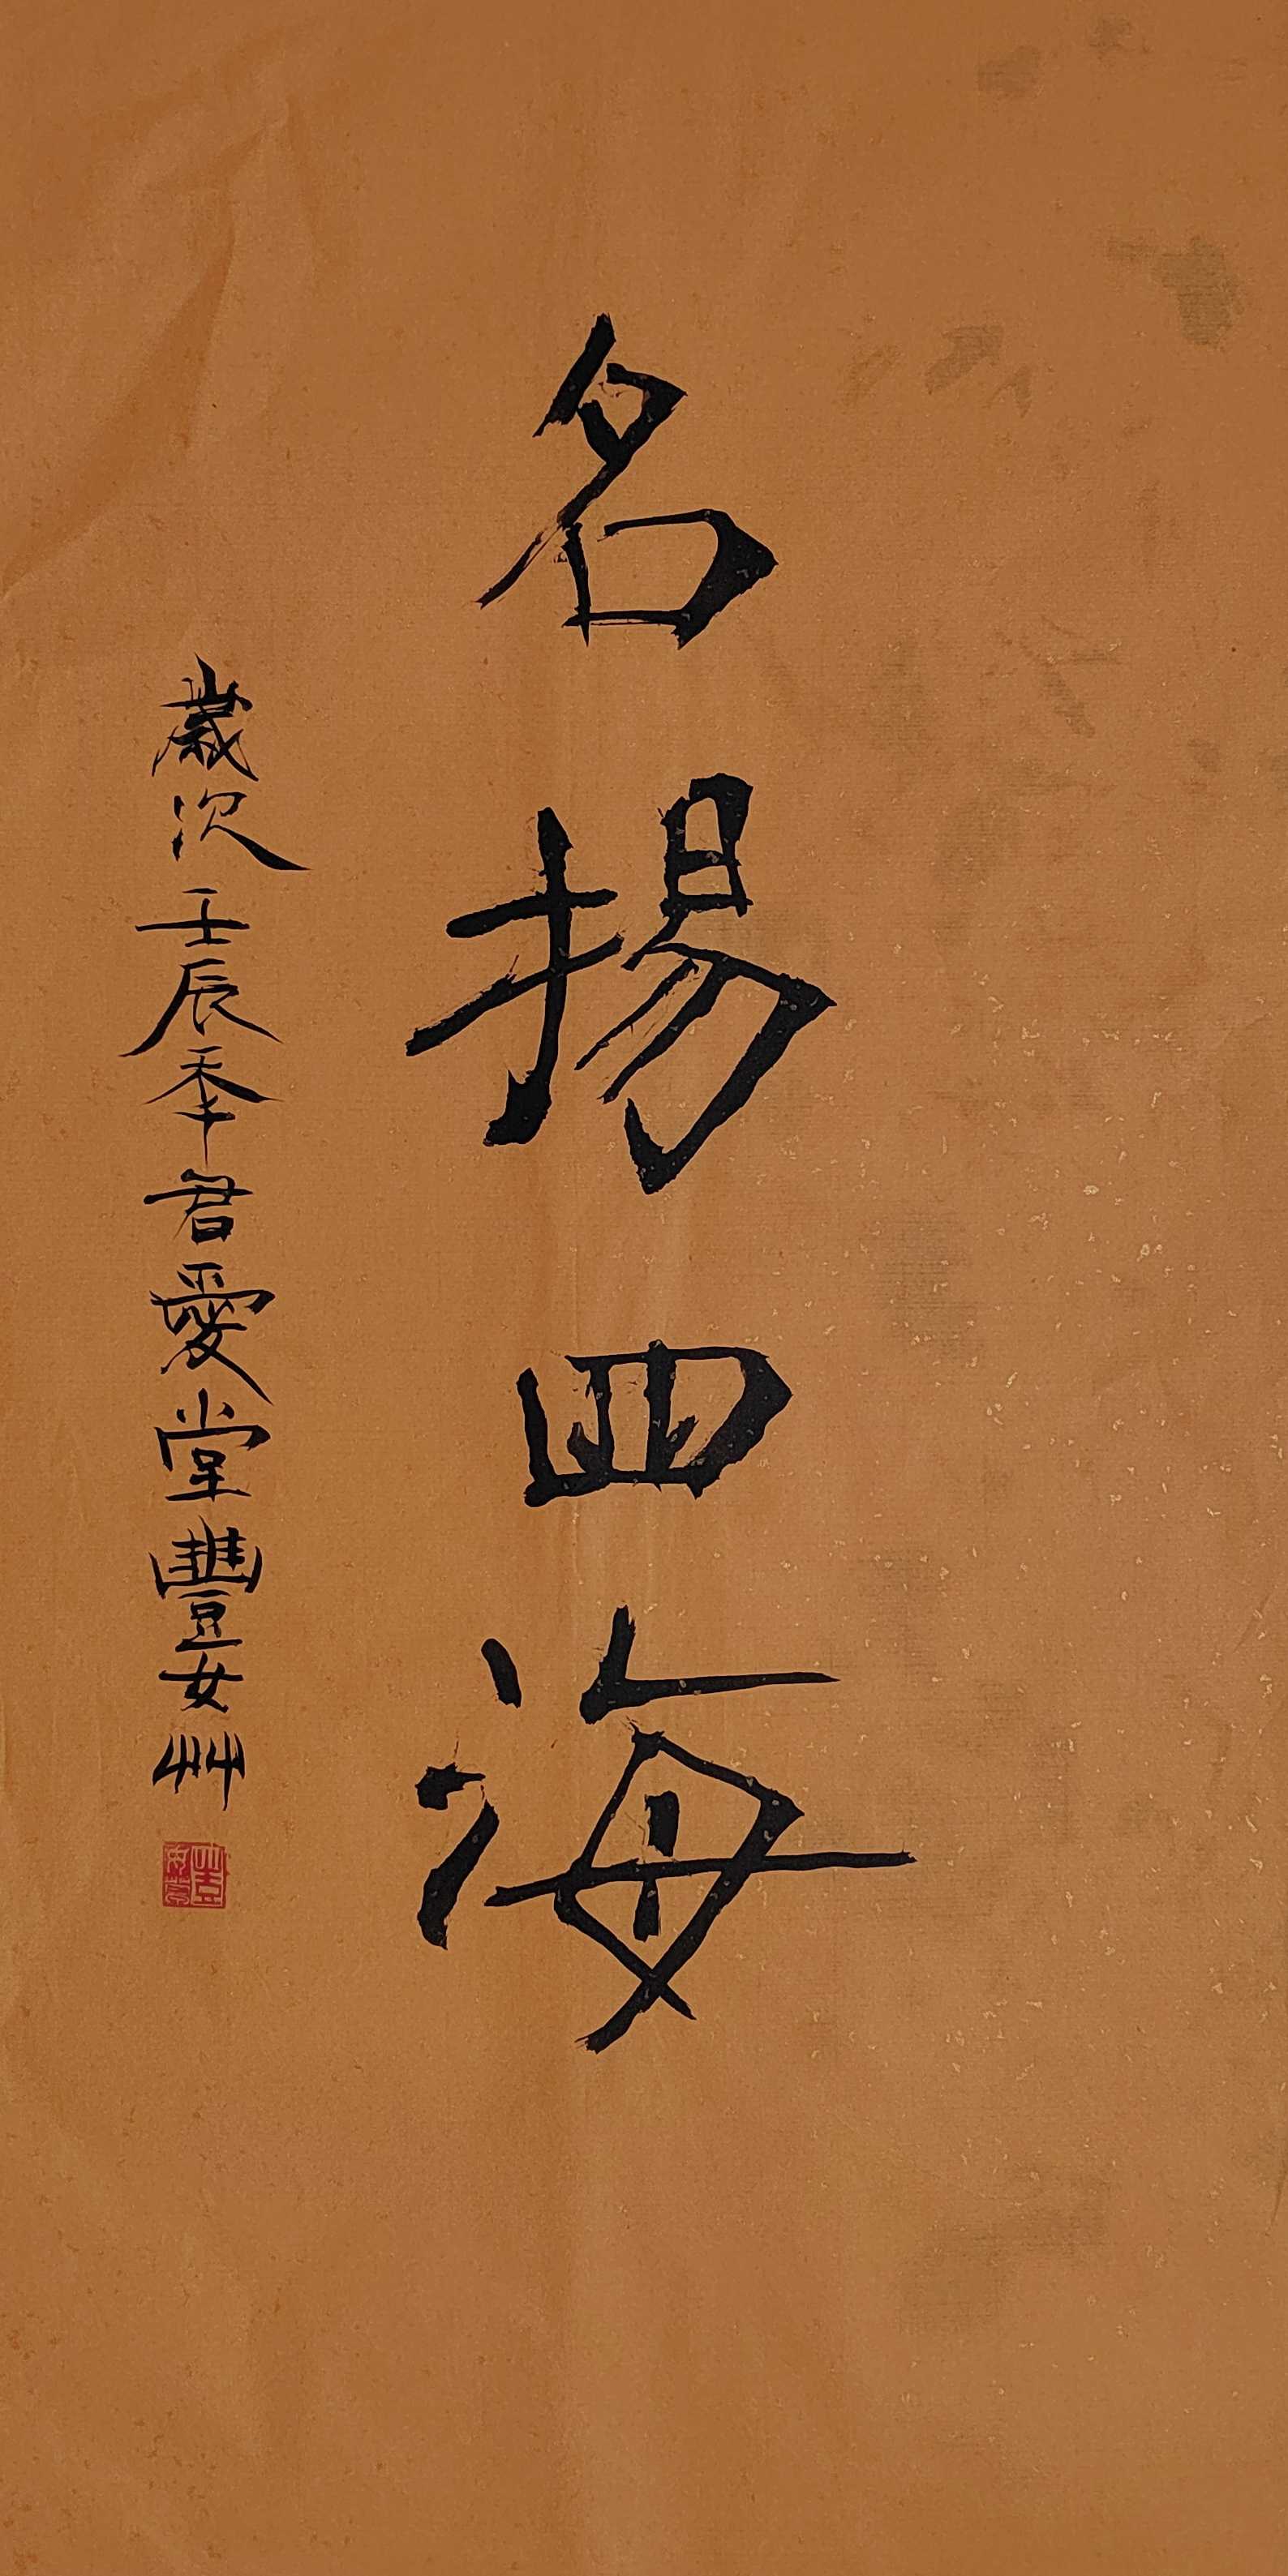 名揚四海
歲次壬辰季君愛堂豐女艸